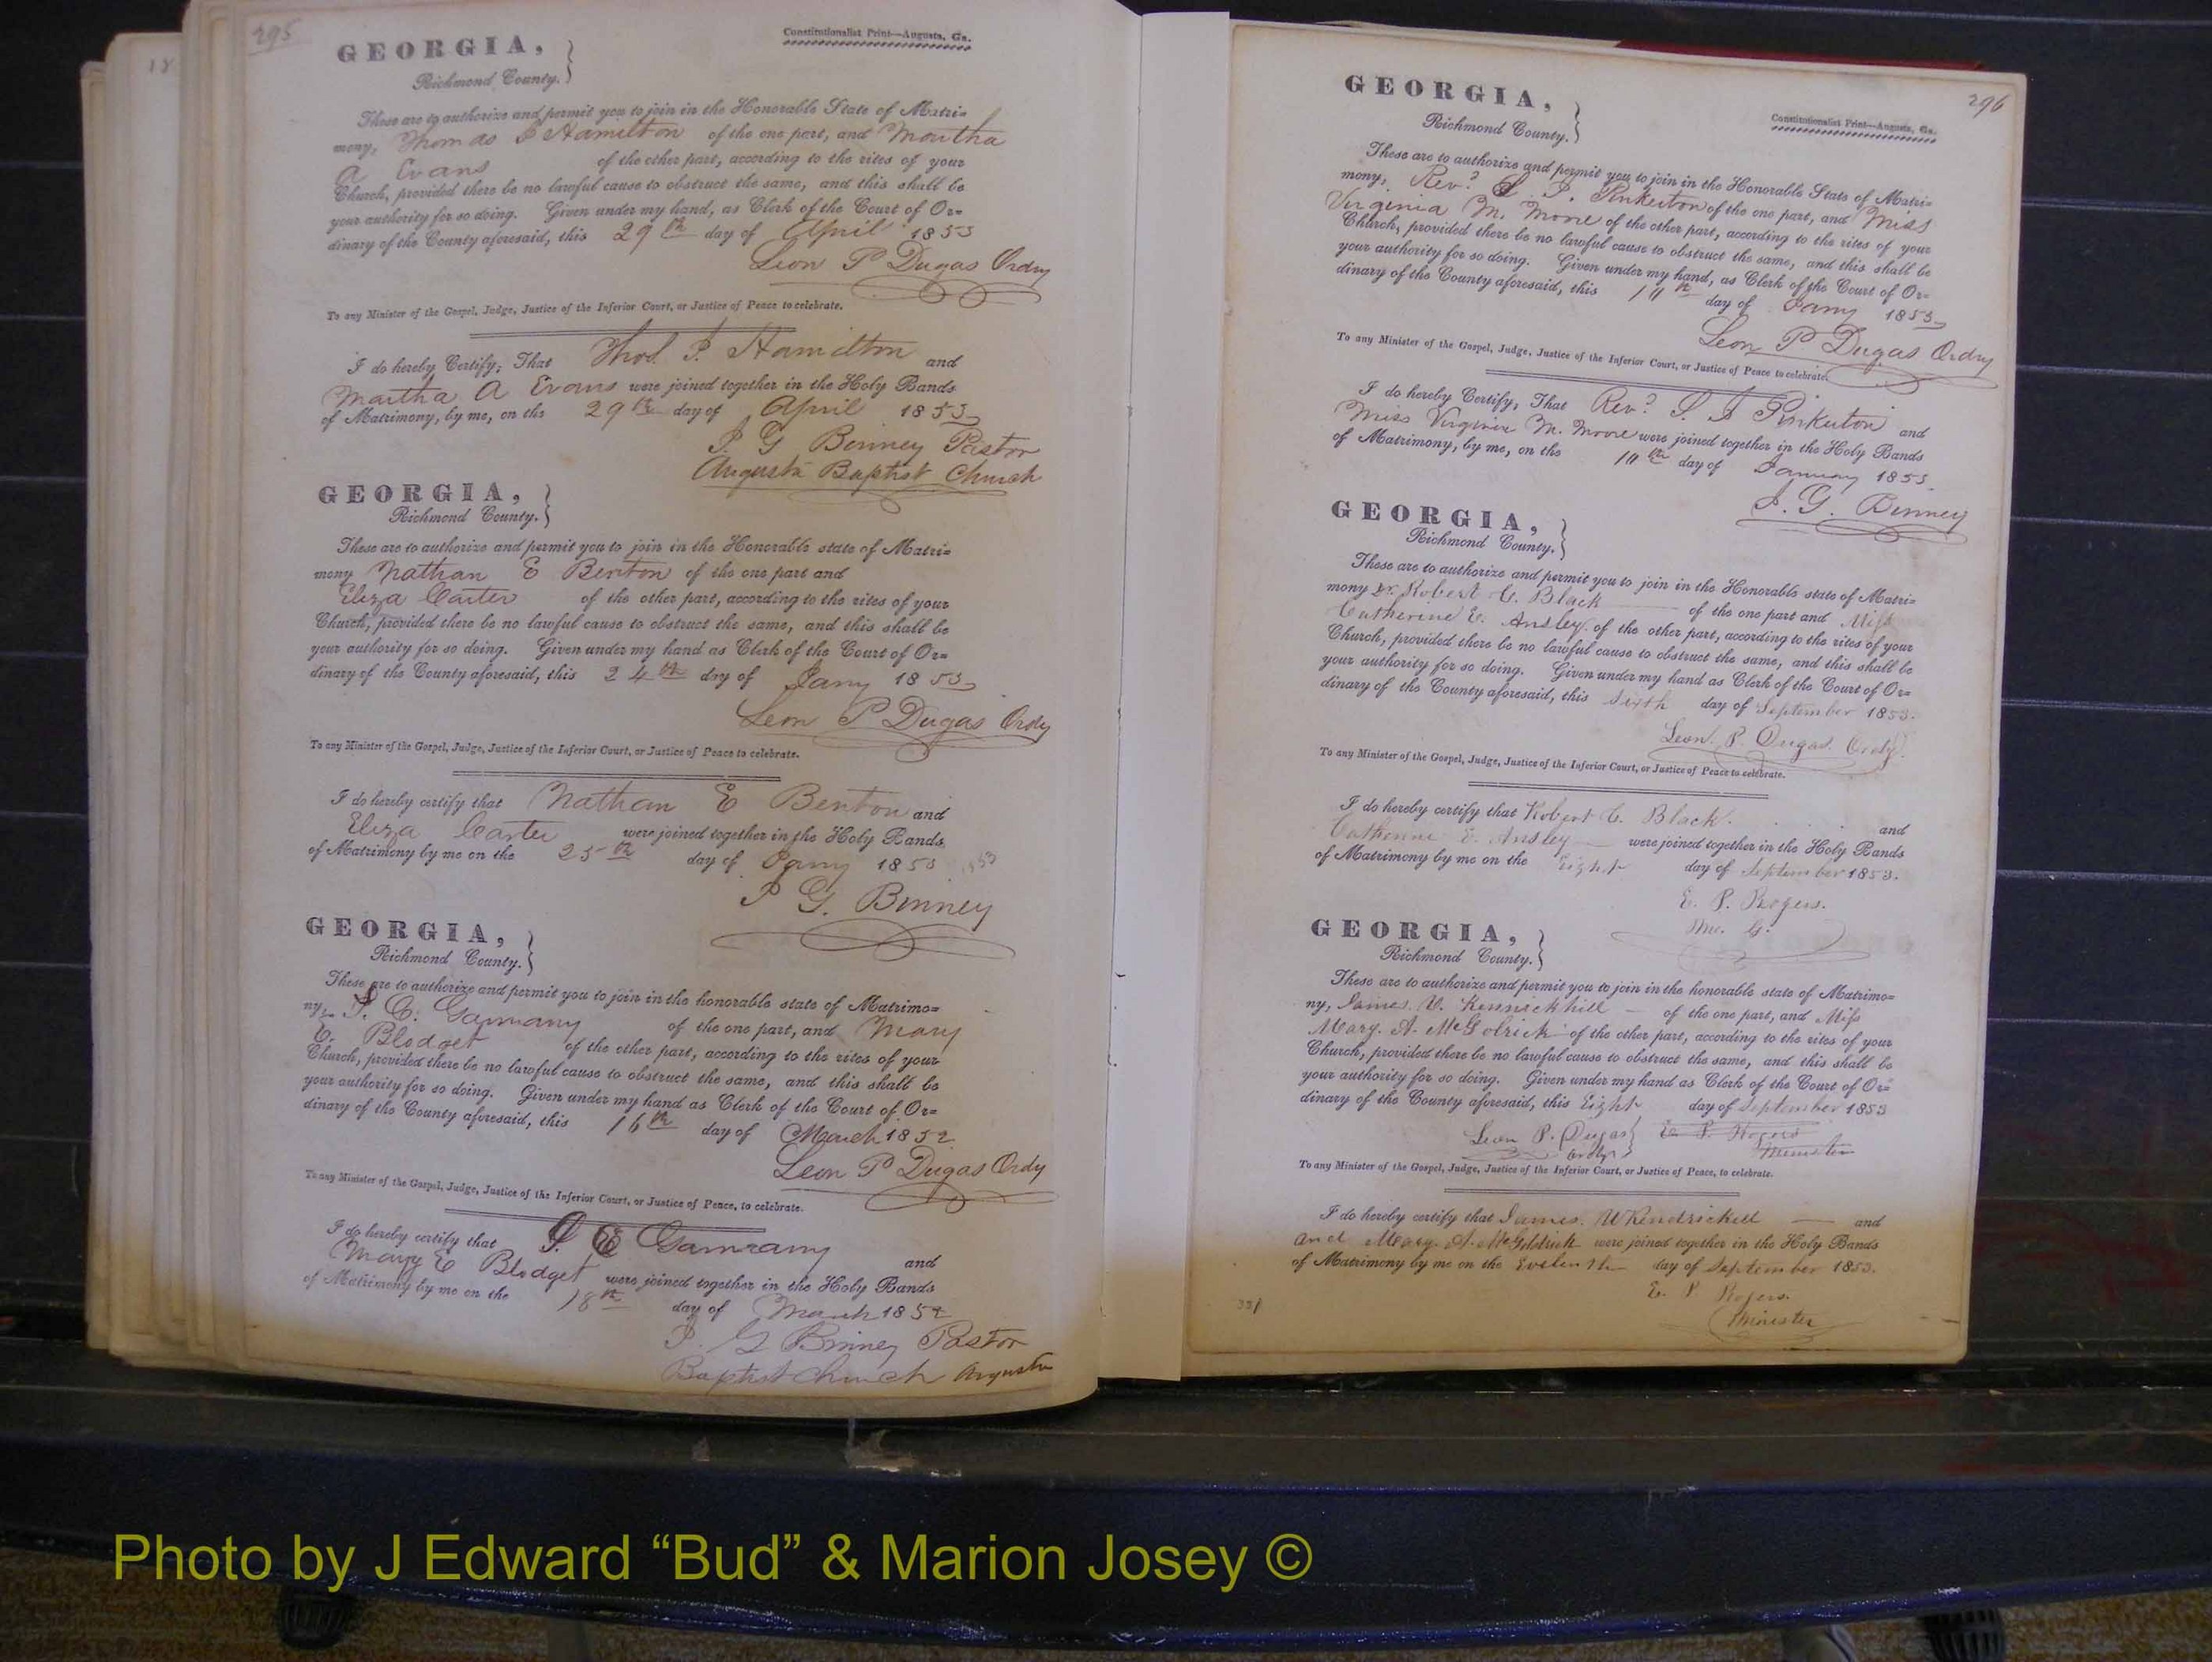 295
Constitutionalist Print—Augusta, Ga.
GEORGIA, }
Richmond County. }
These are to authorize and permit you to join in the Honorable State of Matri=
mony, Thomas J Hamilton of the one part, and Martha
A Evans of the other part, according to the rites of your
Church, provided there be no lawful cause to obstruct the same, and this shall be
your authority for so doing. Given under my hand, as Clerk of the Court of Or=
dinary of the County aforesaid, this 29th day of April 1853
Leon P Dugas Ordny
To any Minister of the Gospel, Judge, Justice of the Inferior Court, or Justice of Peace to celebrate.
I do hereby Certify, That Thos. J. Hamilton and
Martha A Evans were joined together in the Holy Bands
of Matrimony, by me, on the 29th day of April 1853
J. G Binney Pastor
Augusta Baptist Church
GEORGIA, }
Richmond County. }
These are to authorize and permit you to join in the Honorable state of Matri=
mony Nathan E Benton of the one part and
Eliza Carter of the other part, according to the rites of your
Church, provided there be no lawful cause to obstruct the same, and this shall be
your authority for so doing. Given under my hand as Clerk of the Court of Or=
dinary of the County aforesaid, this 24th day of Jany 1853
Leon P Dugas Ordy
To any Minister of the Gospel, Judge, Justice of the Inferior Court, or Justice of Peace to celebrate.
I do hereby certify that Nathan E Benton and
Eliza Carter were joined together in the Holy Bands
of Matrimony by me on the 25th day of Jany 1853 1853
J G. Binney
GEORGIA, }
Richmond County. }
These are to authorize and permit you to join in the honorable state of Matrimo=
ny, J. E. Gammany of the one part, and Mary
E. Blodget of the other part, according to the rites of your
Church, provided there be no lawful cause to obstruct the same, and this shall be
your authority for so doing. Given under my hand as Clerk of the Court of Or=
dinary of the County aforesaid, this 16th day of March 1852
Leon P Dugas Ordy
To any Minister of the Gospel, Judge, Justice of the Inferior Court, or Justice of Peace, to celebrate.
I do hereby certify that and
Mary E Blodget were joined together in the Holy Bands
of Matrimony by me on the 18th day of March 1852
J. G Binney Pastor
Baptist Church Augusta
296
Constitutionalist Print—Augusta, Ga.
GEORGIA, }
Richmond County. }
These are to authorize and permit you to join in the Honorable State of Matri=
mony, Rev. J. Pinkerton of the one part, and Miss
Virginia M. Moore of the other part, according to the rites of your
Church, provided there be no lawful cause to obstruct the same, and this shall be
your authority for so doing. Given under my hand, as Clerk of the Court of Or=
dinary of the County aforesaid, this day of Jany 1853
Leon P Dugas Ordny
To any Minister of the Gospel, Judge, Justice of the Inferior Court, or Justice of Peace to celebrate.
I do hereby Certify, That Rev. J Pinkerton and
Miss Virginia M. Moore were joined together in the Holy Bands
of Matrimony, by me, on the day of January 1853.
J. G. Binney
GEORGIA, }
Richmond County. }
These are to authorize and permit you to join in the Honorable state of Matri=
mony Dr. Robert C. Black of the one part and Miss
Catherine E. Ansley of the other part, according to the rites of your
Church, provided there be no lawful cause to obstruct the same, and this shall be
your authority for so doing. Given under my hand as Clerk of the Court of Or=
dinary of the County aforesaid, this Sixth day of September 1853.
Leon. P. Dugas. Ordy.
To any Minister of the Gospel, Judge, Justice of the Inferior Court, or Justice of Peace to celebrate.
I do hereby certify that Robert C. Black. and
Catherine E. Ansley were joined together in the Holy Bands
of Matrimony by me on the Eight day of September 1853.
E. P. Rogers.
M. G.
GEORGIA, }
Richmond County. }
These are to authorize and permit you to join in the honorable state of Matrimo=
ny, James. W. Kennickhill of the one part, and Miss
Mary. A. McGolrick of the other part, according to the rites of your
Church, provided there be no lawful cause to obstruct the same, and this shall be
your authority for so doing. Given under my hand as Clerk of the Court of Or=
dinary of the County aforesaid, this Eight day of September 1853
Leon P. Dugas } E. P. Rogers
Ordy } Minister
To any Minister of the Gospel, Judge, Justice of the Inferior Court, or Justice of Peace, to celebrate.
I do hereby certify that James. W Kendrickell and
and Mary. A. McGoldrick were joined together in the Holy Bands
of Matrimony by me on the day of September 1853.
E. P Rogers.
Minister
Photo by J Edward “Bud” & Marion Josey ©